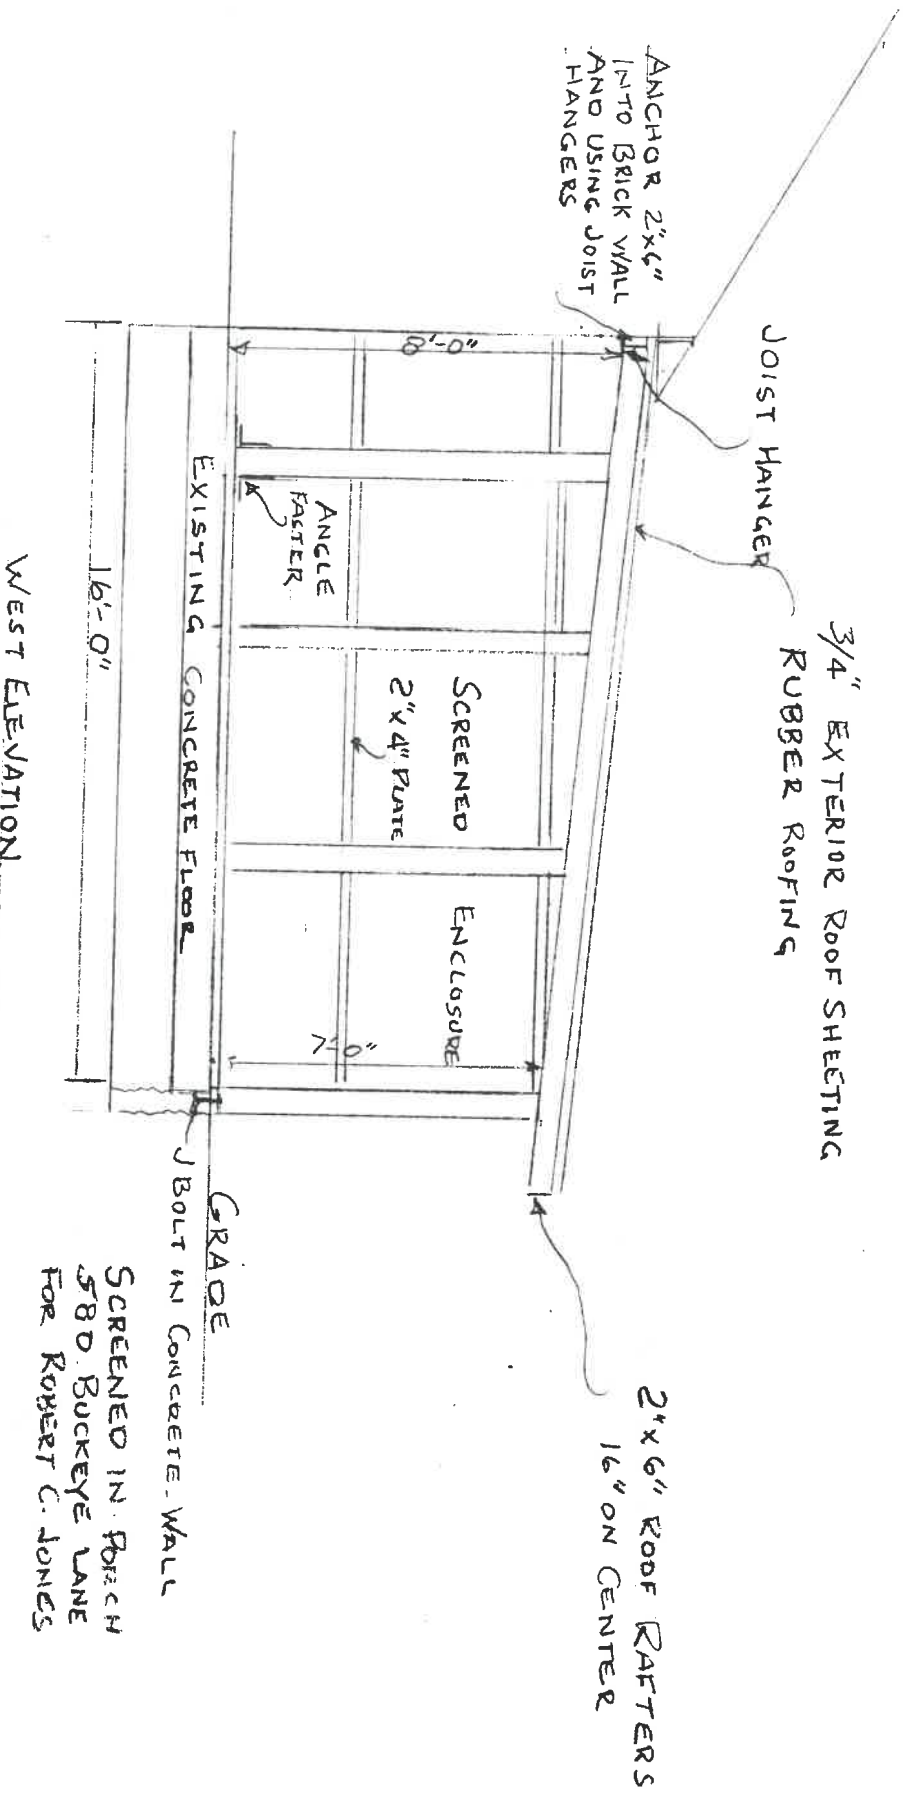 ANCHOR 2"x6"
INTO BRICK WALL
AND USING JOIST
HANGERS
JOIST HANGER
3/4" EXTERIOR ROOF SHEETING
RUBBER ROOFING
2"x6" ROOF RAFTERS
16" ON CENTER
8'-0"
ANGLE
FASTER
SCREENED ENCLOSURE
2"x4" PLATE
7'-0"
EXISTING CONCRETE FLOOR
GRADE
J BOLT IN CONCRETE WALL
16'-0"
WEST ELEVATION
SCREENED IN PORCH
580 BUCKEYE LANE
FOR ROBERT C. JONES